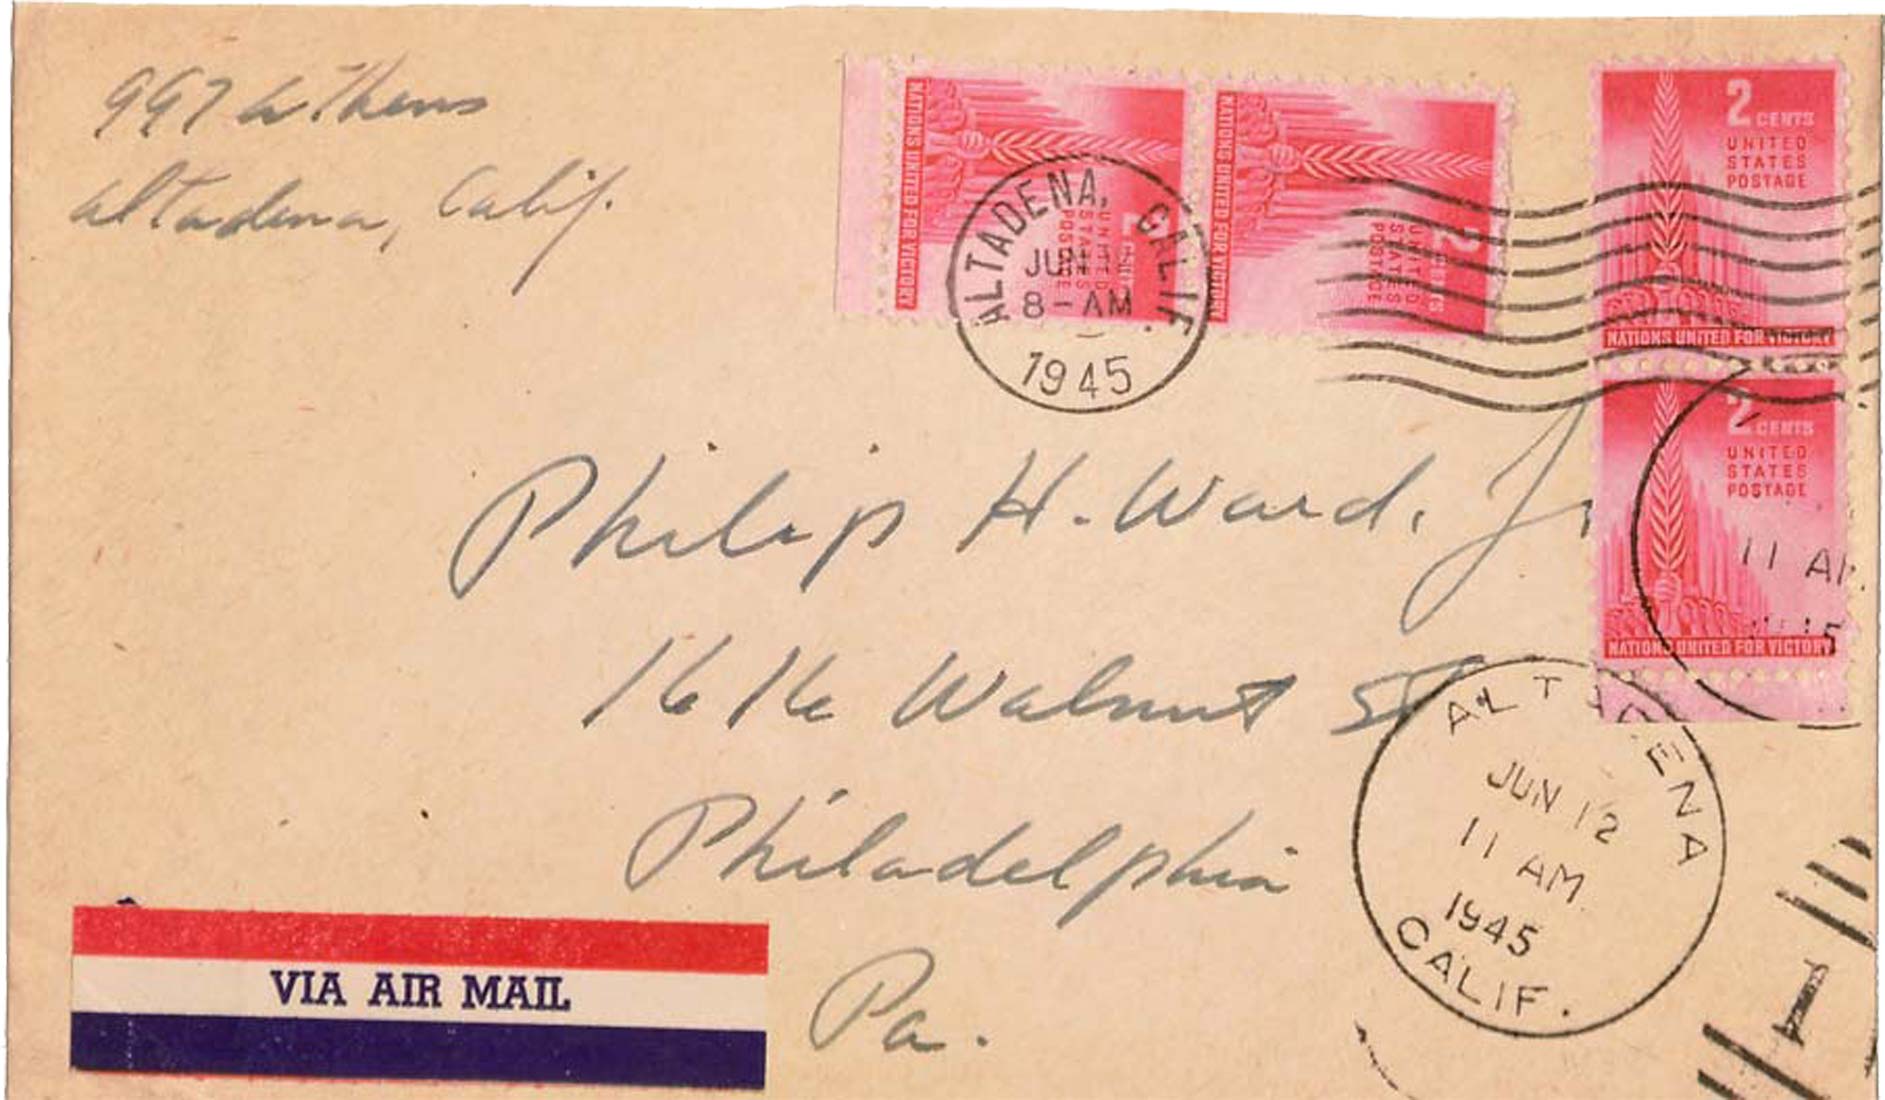 997 Athens
Altadena, Calif.
NATIONS UNITED FOR VICTORY
2 CENTS
UNITED
STATES
POSTAGE
NATIONS UNITED FOR VICTORY
2 CENTS
UNITED
STATES
POSTAGE
2 CENTS
UNITED
STATES
POSTAGE
NATIONS UNITED FOR VICTORY
2 CENTS
UNITED
STATES
POSTAGE
NATIONS UNITED FOR VICTORY
ALTADENA, CALIF.
JUN 12
8-AM
1945
11 AM
Philip H. Ward, Jr
1616 Walnut St
Philadelphia
Pa.
ALTADENA
JUN 12
11 AM
1945
CALIF.
1
VIA AIR MAIL